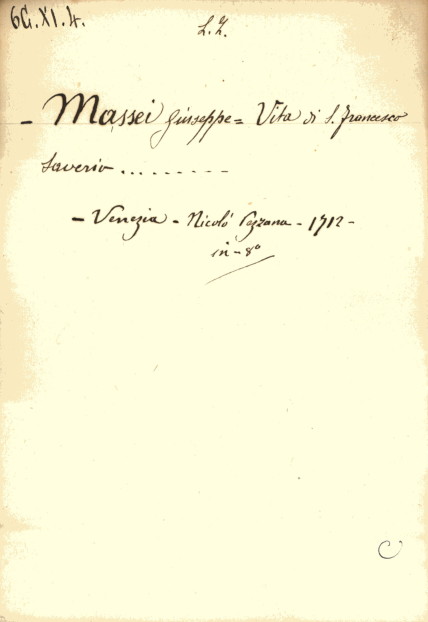 6G.XI.4.
L.Z.
- Massei Giuseppe = Vita di S. Francesco
Saverio .........
- Venezia - Nicolò Pezzana - 1712 -
in - 8º
C